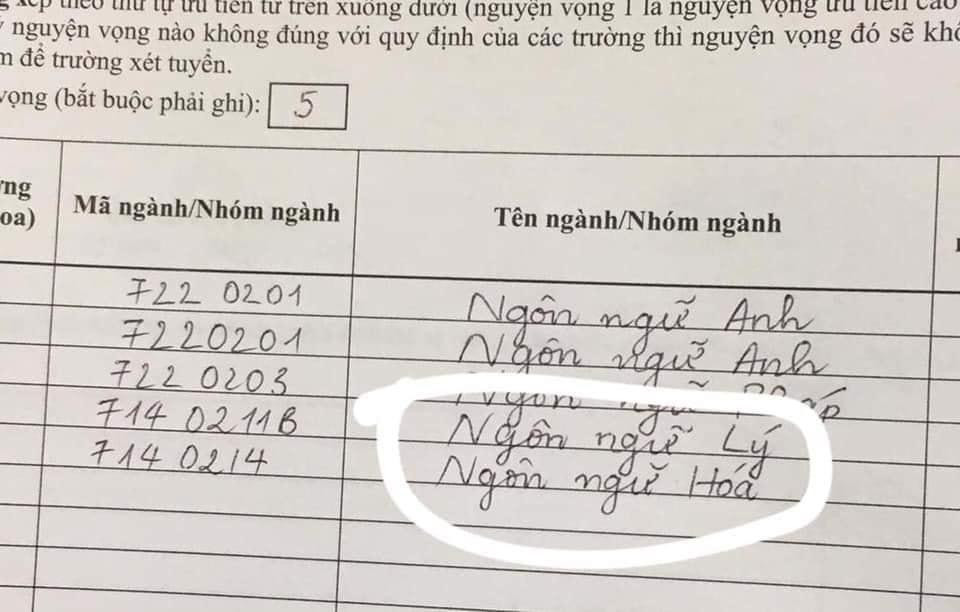 xếp theo thứ tự ưu tiên từ trên xuống dưới (nguyện vọng 1 là nguyện vọng ưu tiên cao
nguyện vọng nào không đúng với quy định của các trường thì nguyện vọng đó sẽ
để trường xét tuyển.
vọng (bắt buộc phải ghi): 5
Mã ngành/Nhóm ngành Tên ngành/Nhóm ngành
722 0201 Ngôn ngữ Anh
7220201 Ngôn ngữ Anh
722 0203 Ngôn ngữ
714 0211B Ngôn ngữ Lý
714 0214 Ngôn ngữ Hoá